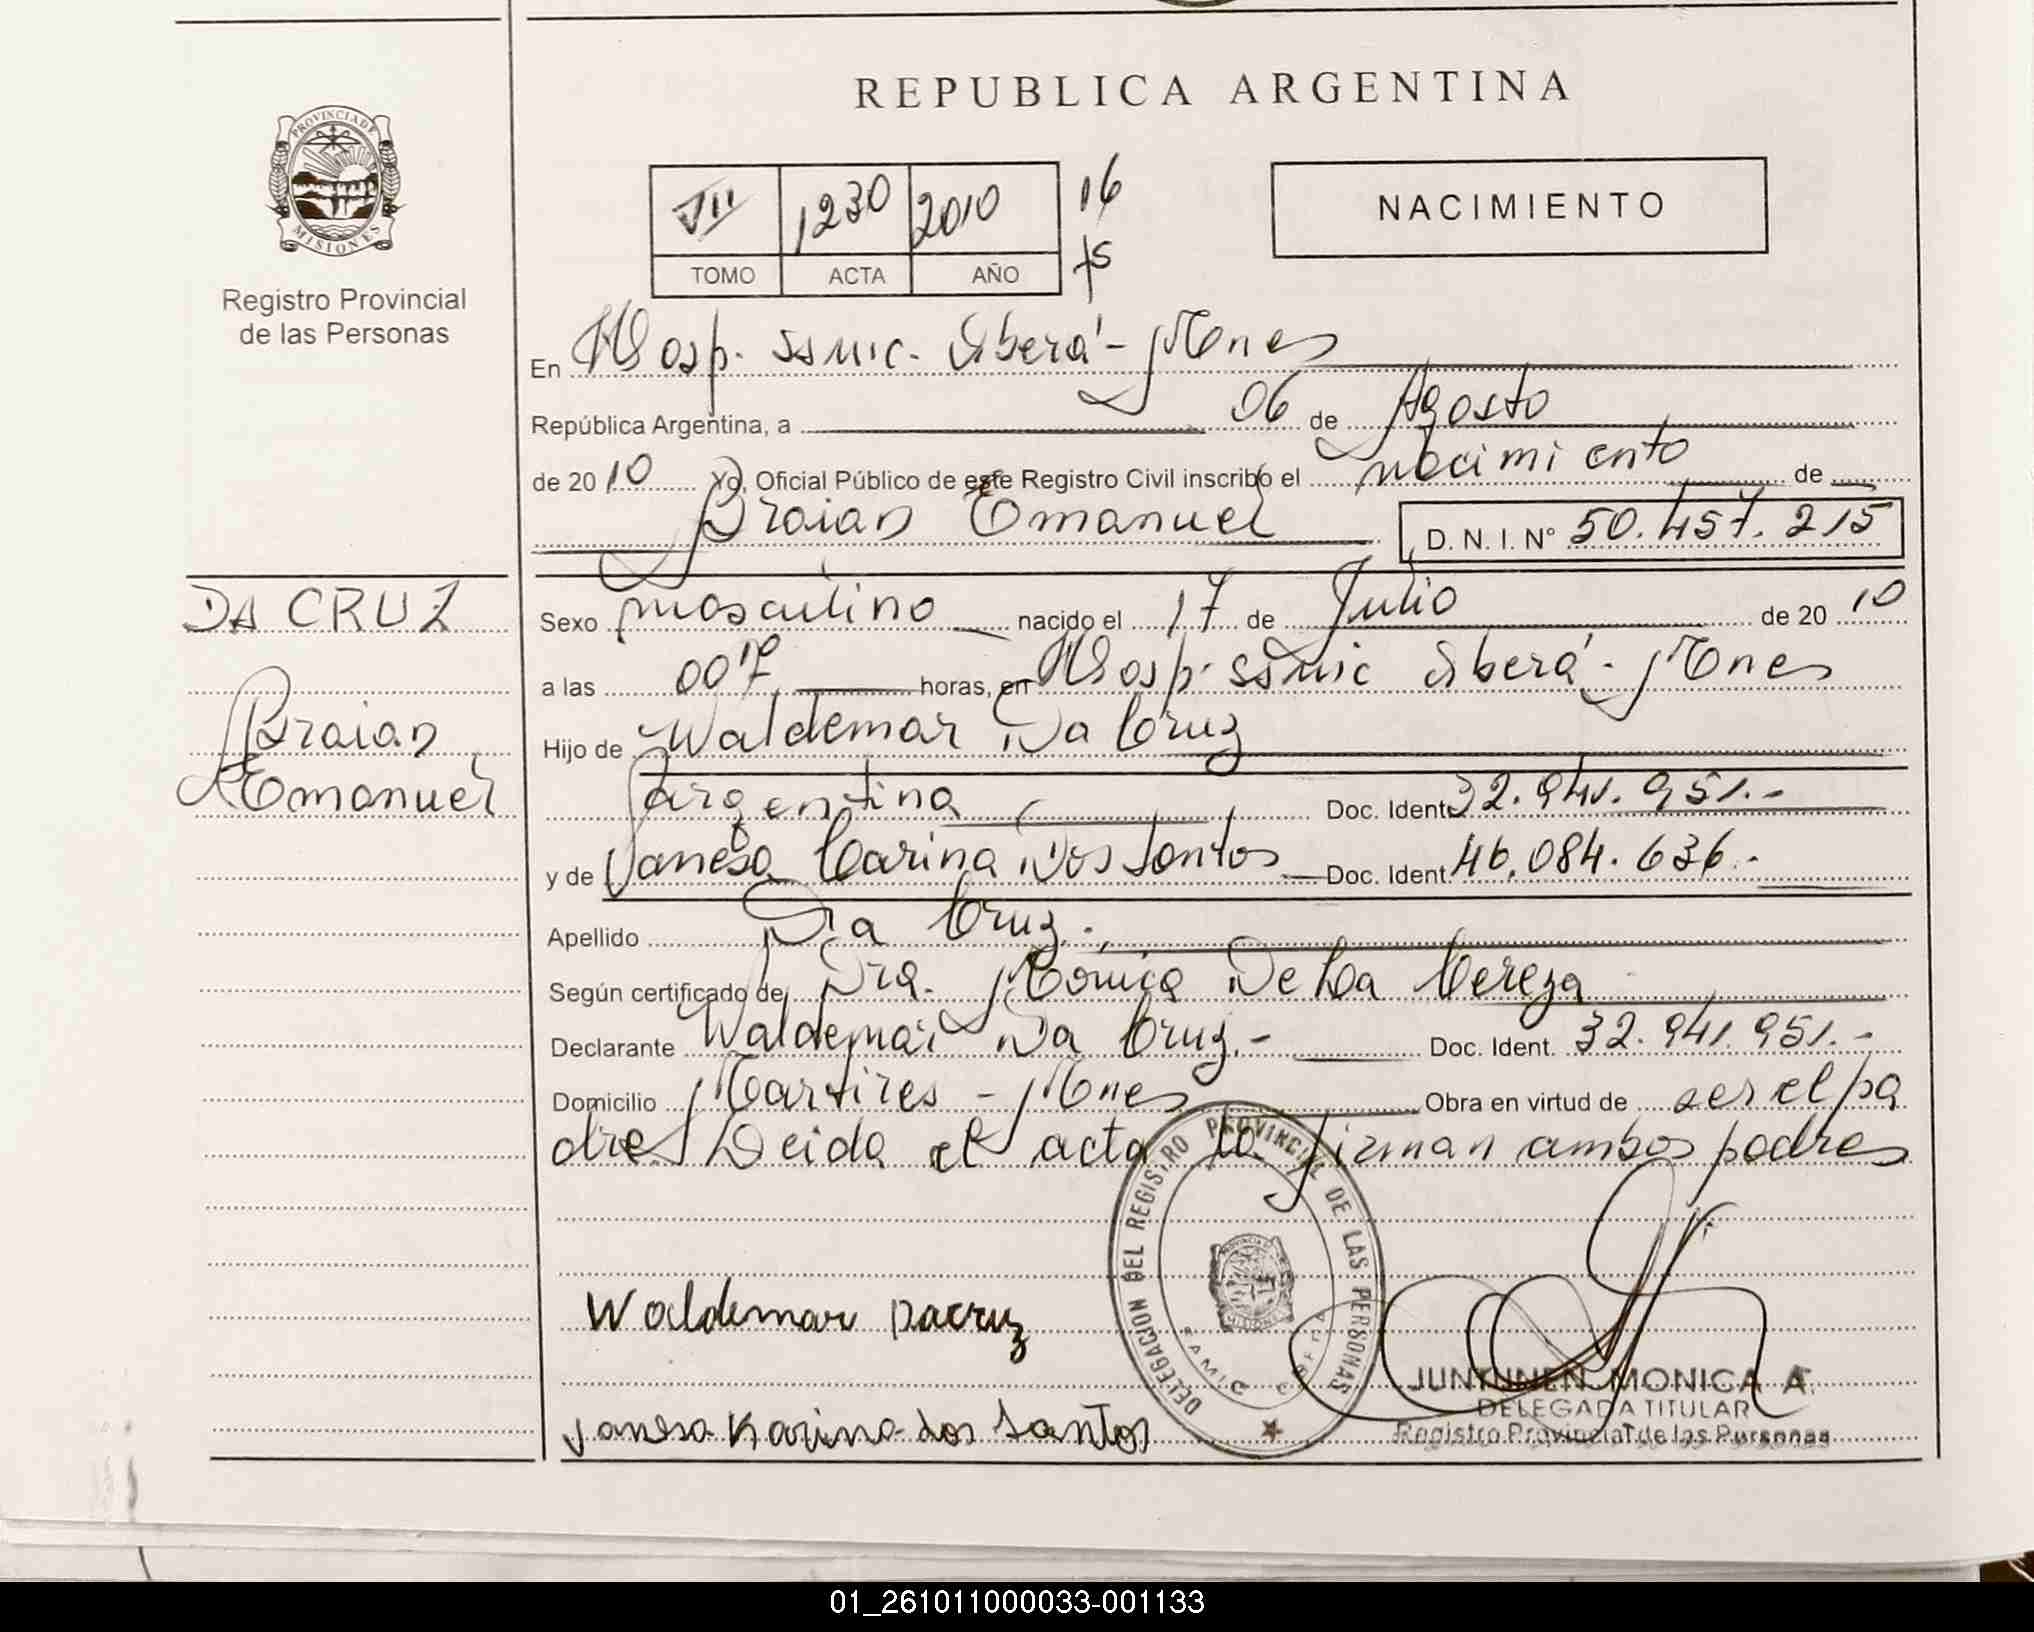 REPUBLICA ARGENTINA
PROVINCIA DE
MISIONES
Registro Provincial
de las Personas
VII 1230 2010 16
TOMO ACTA AÑO
NACIMIENTO
En Hosp. SSMIC. Oberá - Mnes
República Argentina, a 06 de Agosto
de 2010 Yo, Oficial Público de este Registro Civil inscribo el nacimiento de
Braian Emanuel D. N. I. N° 50.457.215
DA CRUZ
Braian
Emanuel
Sexo masculino nacido el 17 de Julio de 2010
a las horas, en Hosp. SSMIC Oberá - Mnes
Hijo de Waldemar Da Cruz
argentina Doc. Ident. 32.941.951.-
y de Vanesa Carina Dos Santos Doc. Ident. 46.084.636.-
Apellido Da Cruz.
Según certificado de Dra. Mónica De La
Declarante Waldemar Da Cruz.- Doc. Ident. 32.941.951.-
Domicilio Martires - Mnes Obra en virtud de ser el pa
dre Leida el acta la firman ambos padres
Waldemar Dacruz
Vanesa Karina dos Santos
DELEGACION DEL REGISTRO PROVINCIAL DE LAS PERSONAS
JUNTUNEN MONICA A.
DELEGADA TITULAR
Registro Provincial de las Personas
01_261011000033-001133